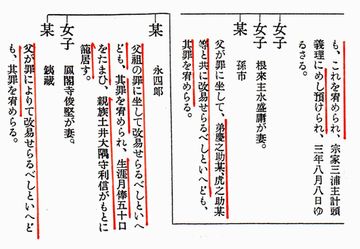 も、これを宥められ、宗家三浦主計頭
義理にめし預けられ、三年八月八日ゆ
るさる。
女子
女子
根來主水盛庸が妻。
某
孫市
父が罪に坐して、弟慶之助某、虎之助某
等と共に改易せらるべしといへども、
其罪を宥めらる。
某
永四郎
父祖の罪に坐して改易せらるべしといへ
ども、其罪を宥められ、生涯月俸五十口
をたまひ、親族土井大隅守利信がもとに
籠居す。
女子
鳳閣寺俊堅が妻。
某
銕藏
父が罪によりて改易せらるべしといへど
も、其罪を宥めらる。